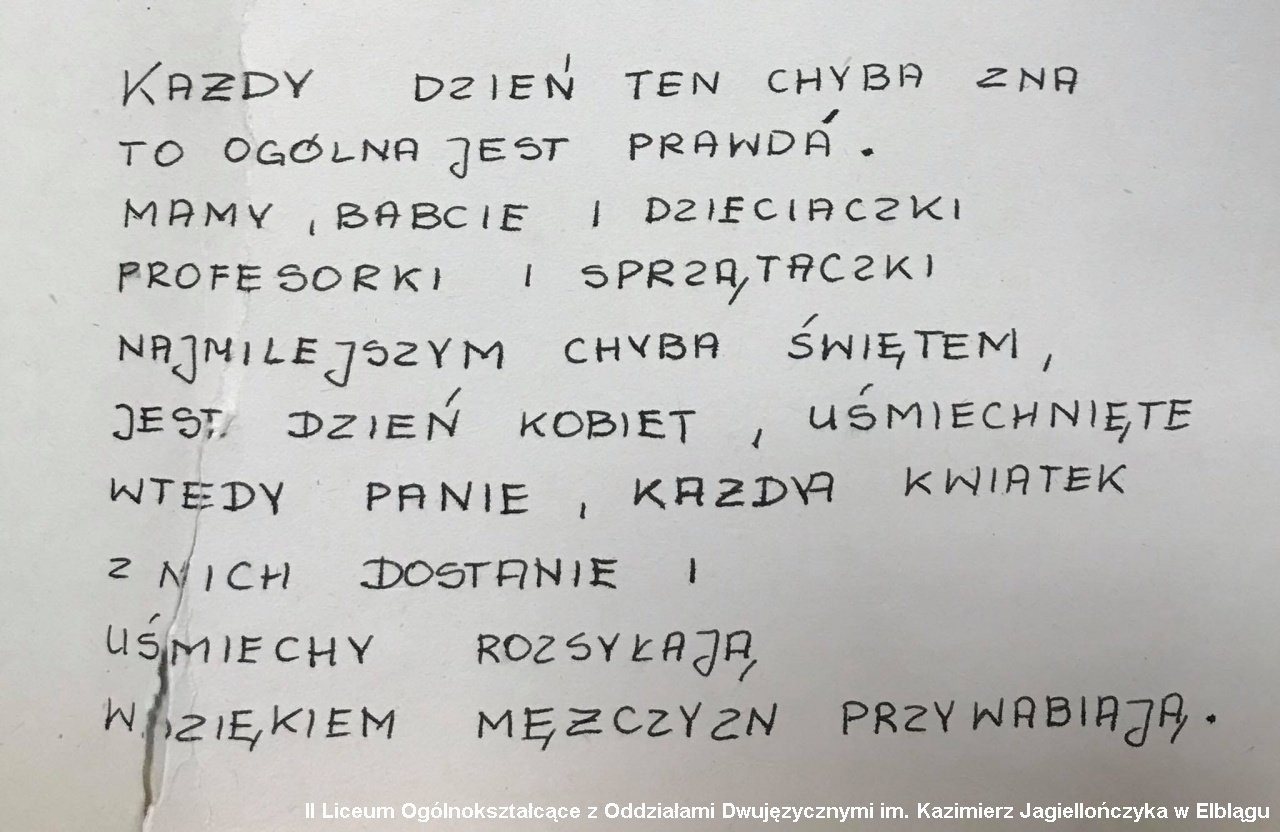 KAƵDY DZIEŃ TEN CHYBA ZNA
TO OGÓLNA JEST PRAWDÁ.
MAMY, BABCIE I DZIECIACZKI
PROFESORKI I SPRZĄTACZKI
NAJMILEJSZYM CHYBA ŚWIĘTEM,
JEST DZIEŃ KOBIET, UŚMIECHNIĘTE
WTEDY PANIE, KAƵDYA KWIATEK
Z NICH DOSTANIE I
UŚMIECHY ROZSYŁAJĄ
WDZIĘKIEM MĘƵCZYZN PRZYWABIAJĄ.
II Liceum Ogólnokształcące z Oddziałami Dwujęzycznymi im. Kazimierz Jagiellończyka w Elblągu